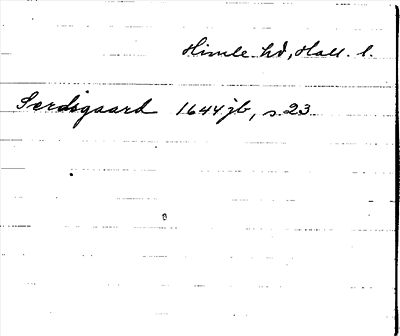 Himle hd, Hall. l.
Serdsgaard 1644 jb, s. 23